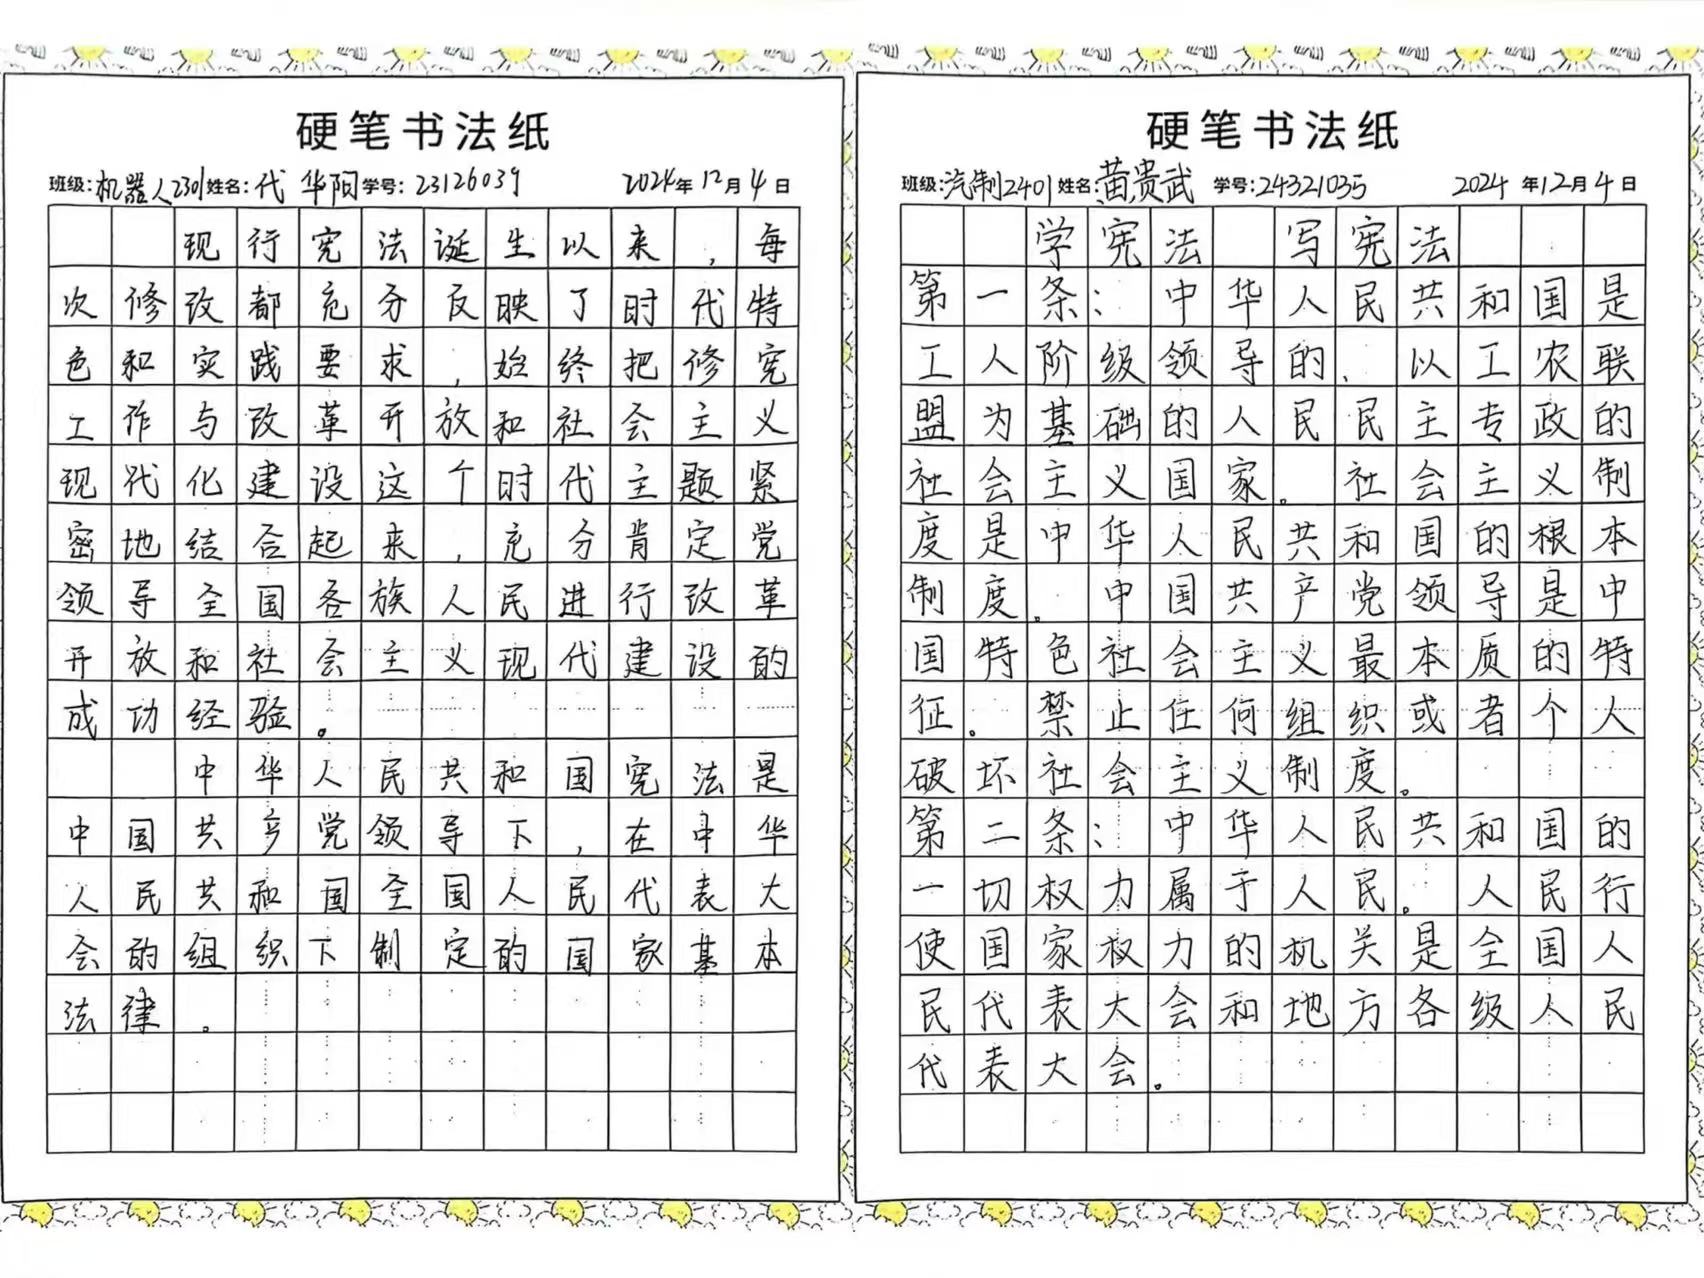 硬笔书法纸
班级:机器人2301 姓名:代华阳 学号:23126039 2024年12月4日
现行宪法诞生以来,每
次修改都充分反映了时代特
色和实践要求,始终把修宪
工作与改革开放和社会主义
现代化建设这个时代主题紧
密地结合起来,充分肯定党
领导全国各族人民进行改革
开放和社会主义现代建设的
成功经验。
中华人民共和国宪法是
中国共产党领导下,在中华
人民共和国全国人民代表大
会的组织下制定的国家基本
法律。
硬笔书法纸
班级:汽制2401 姓名:苗贵武 学号:24321035 2024年12月4日
学宪法 写宪法
第一条:中华人民共和国是
工人阶级领导的、以工农联
盟为基础的人民民主专政的
社会主义国家。社会主义制
度是中华人民共和国的根本
制度。中国共产党领导是中
国特色社会主义最本质的特
征。禁止任何组织或者个人
破坏社会主义制度。
第二条:中华人民共和国的
一切权力属于人民。人民行
使国家权力的机关是全国人
民代表大会和地方各级人民
代表大会。